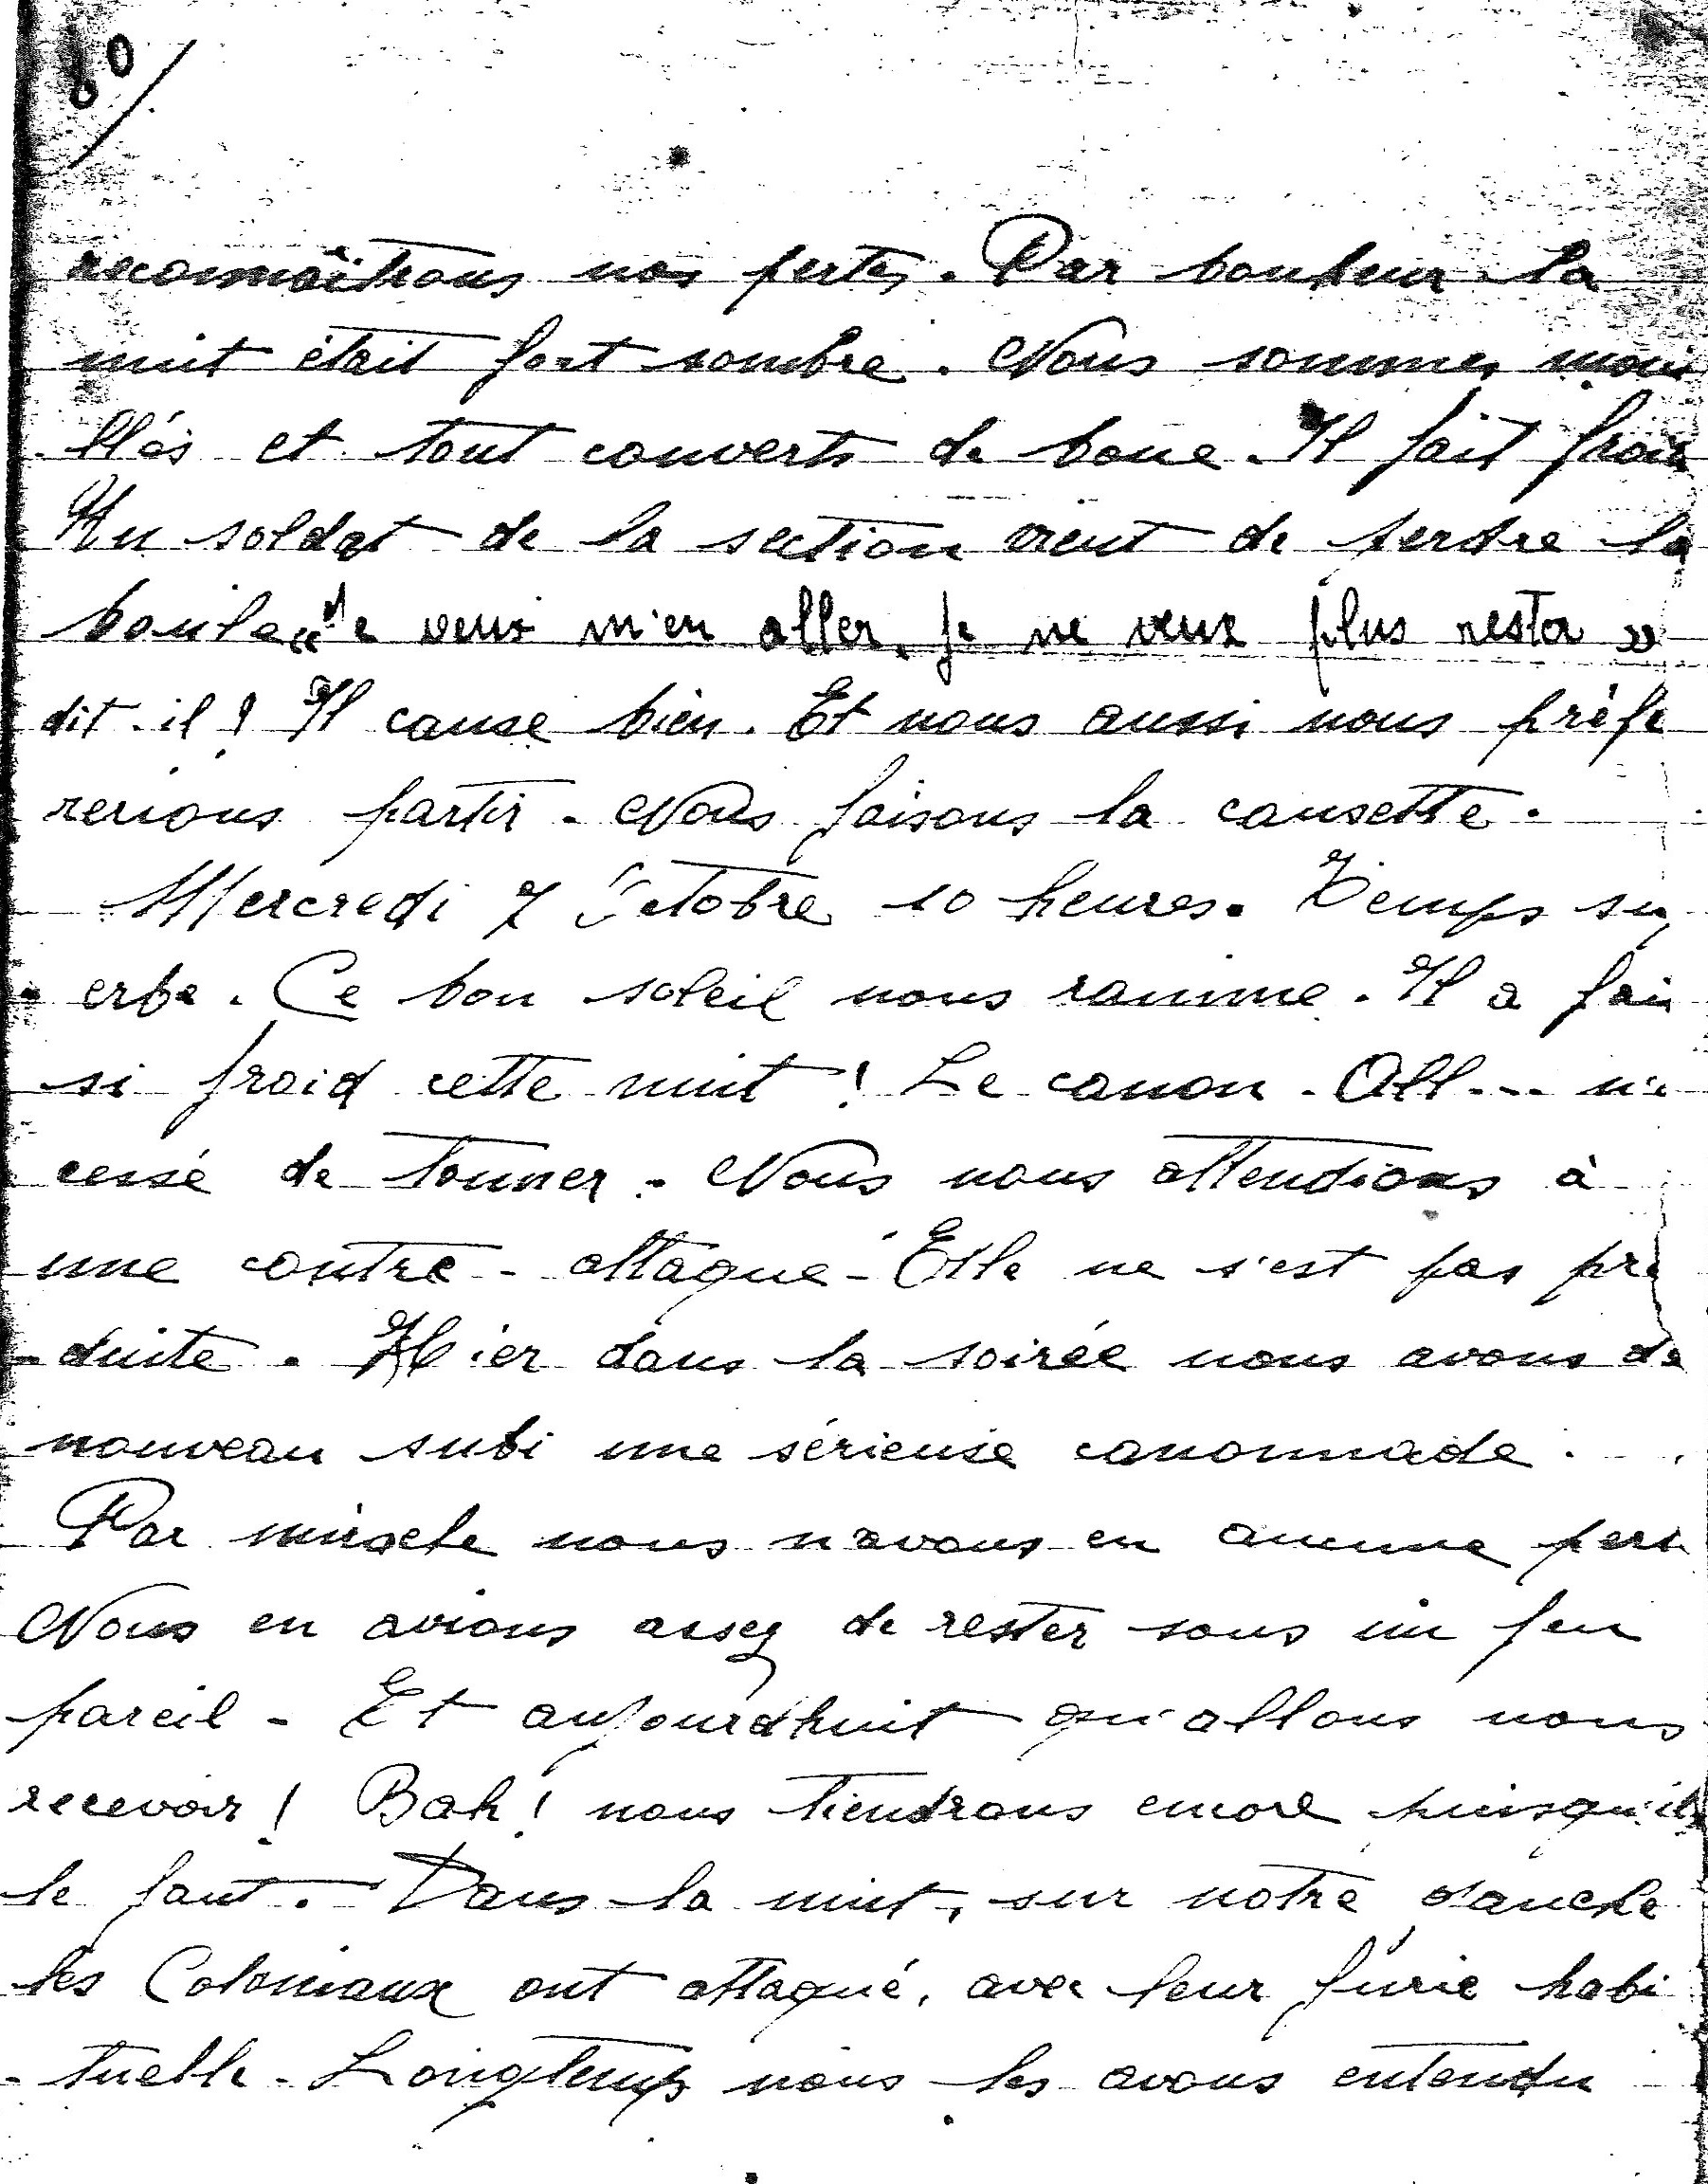 80/
reconnaîtrons nos pertes. Par bonheur la
nuit était fort sombre. Nous sommes moui
llés et tout couverts de boue. Il fait froid
Un soldat de la section vient de perdre la
boule « Je veux m'en aller, je ne veux plus rester »
dit-il ! Il cause bien. Et nous aussi nous préfé
rerions partir. Nous faisons la causette.
Mercredi 7 Octobre 10 heures. Temps su
erbe. Ce bon soleil nous ranime. Il a fai
si froid cette nuit ! Le canon All... n'a
cessé de tonner. Nous nous attendions à
une contre-attaque - Elle ne s'est pas pro
duite. Hier dans la soirée nous avons de
nouveau subi une sérieuse canonnade.
Par miracle nous n'avons eu aucune pert
Nous en avions assez de rester sous un feu
pareil - Et aujourd'huit qu'allons nous
recevoir ! Bah ! nous tiendrons encore puisqu'il
le faut. Dans la nuit, sur notre gauche
les Coloniaux ont attaqué, avec leur furie habi
tuelle - Longtemps nous les avons entendu